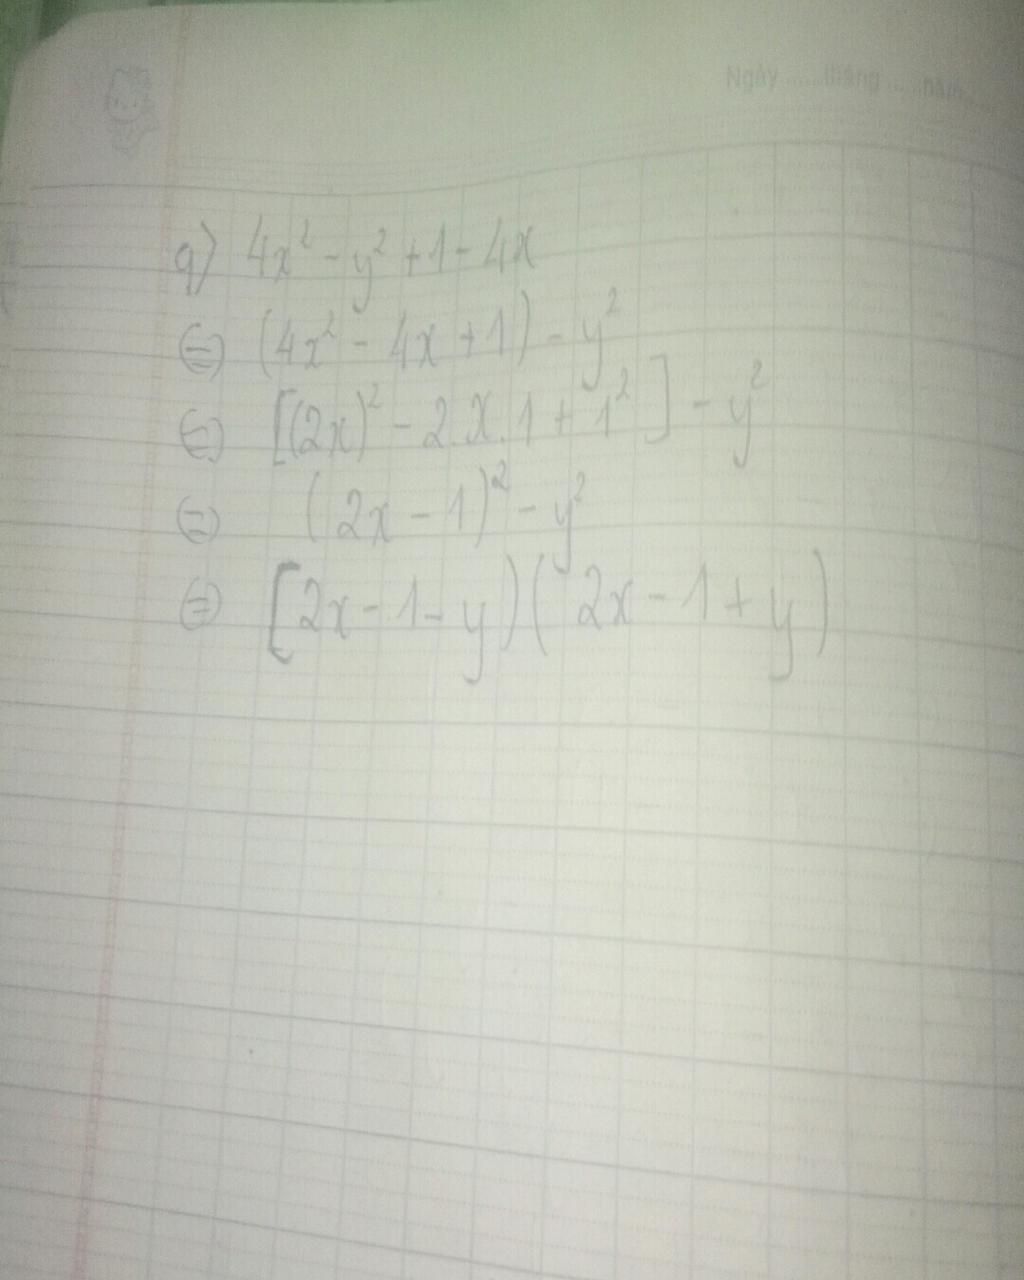 Ngày ......tháng ......năm......
q) 4x² - y² + 1 - 4x
(=) (4x² - 4x + 1) - y²
(=) [(2x)² - 2.x.1 + 1²] - y²
(=) (2x - 1)² - y²
(=) [2x - 1 - y)(2x - 1 + y)